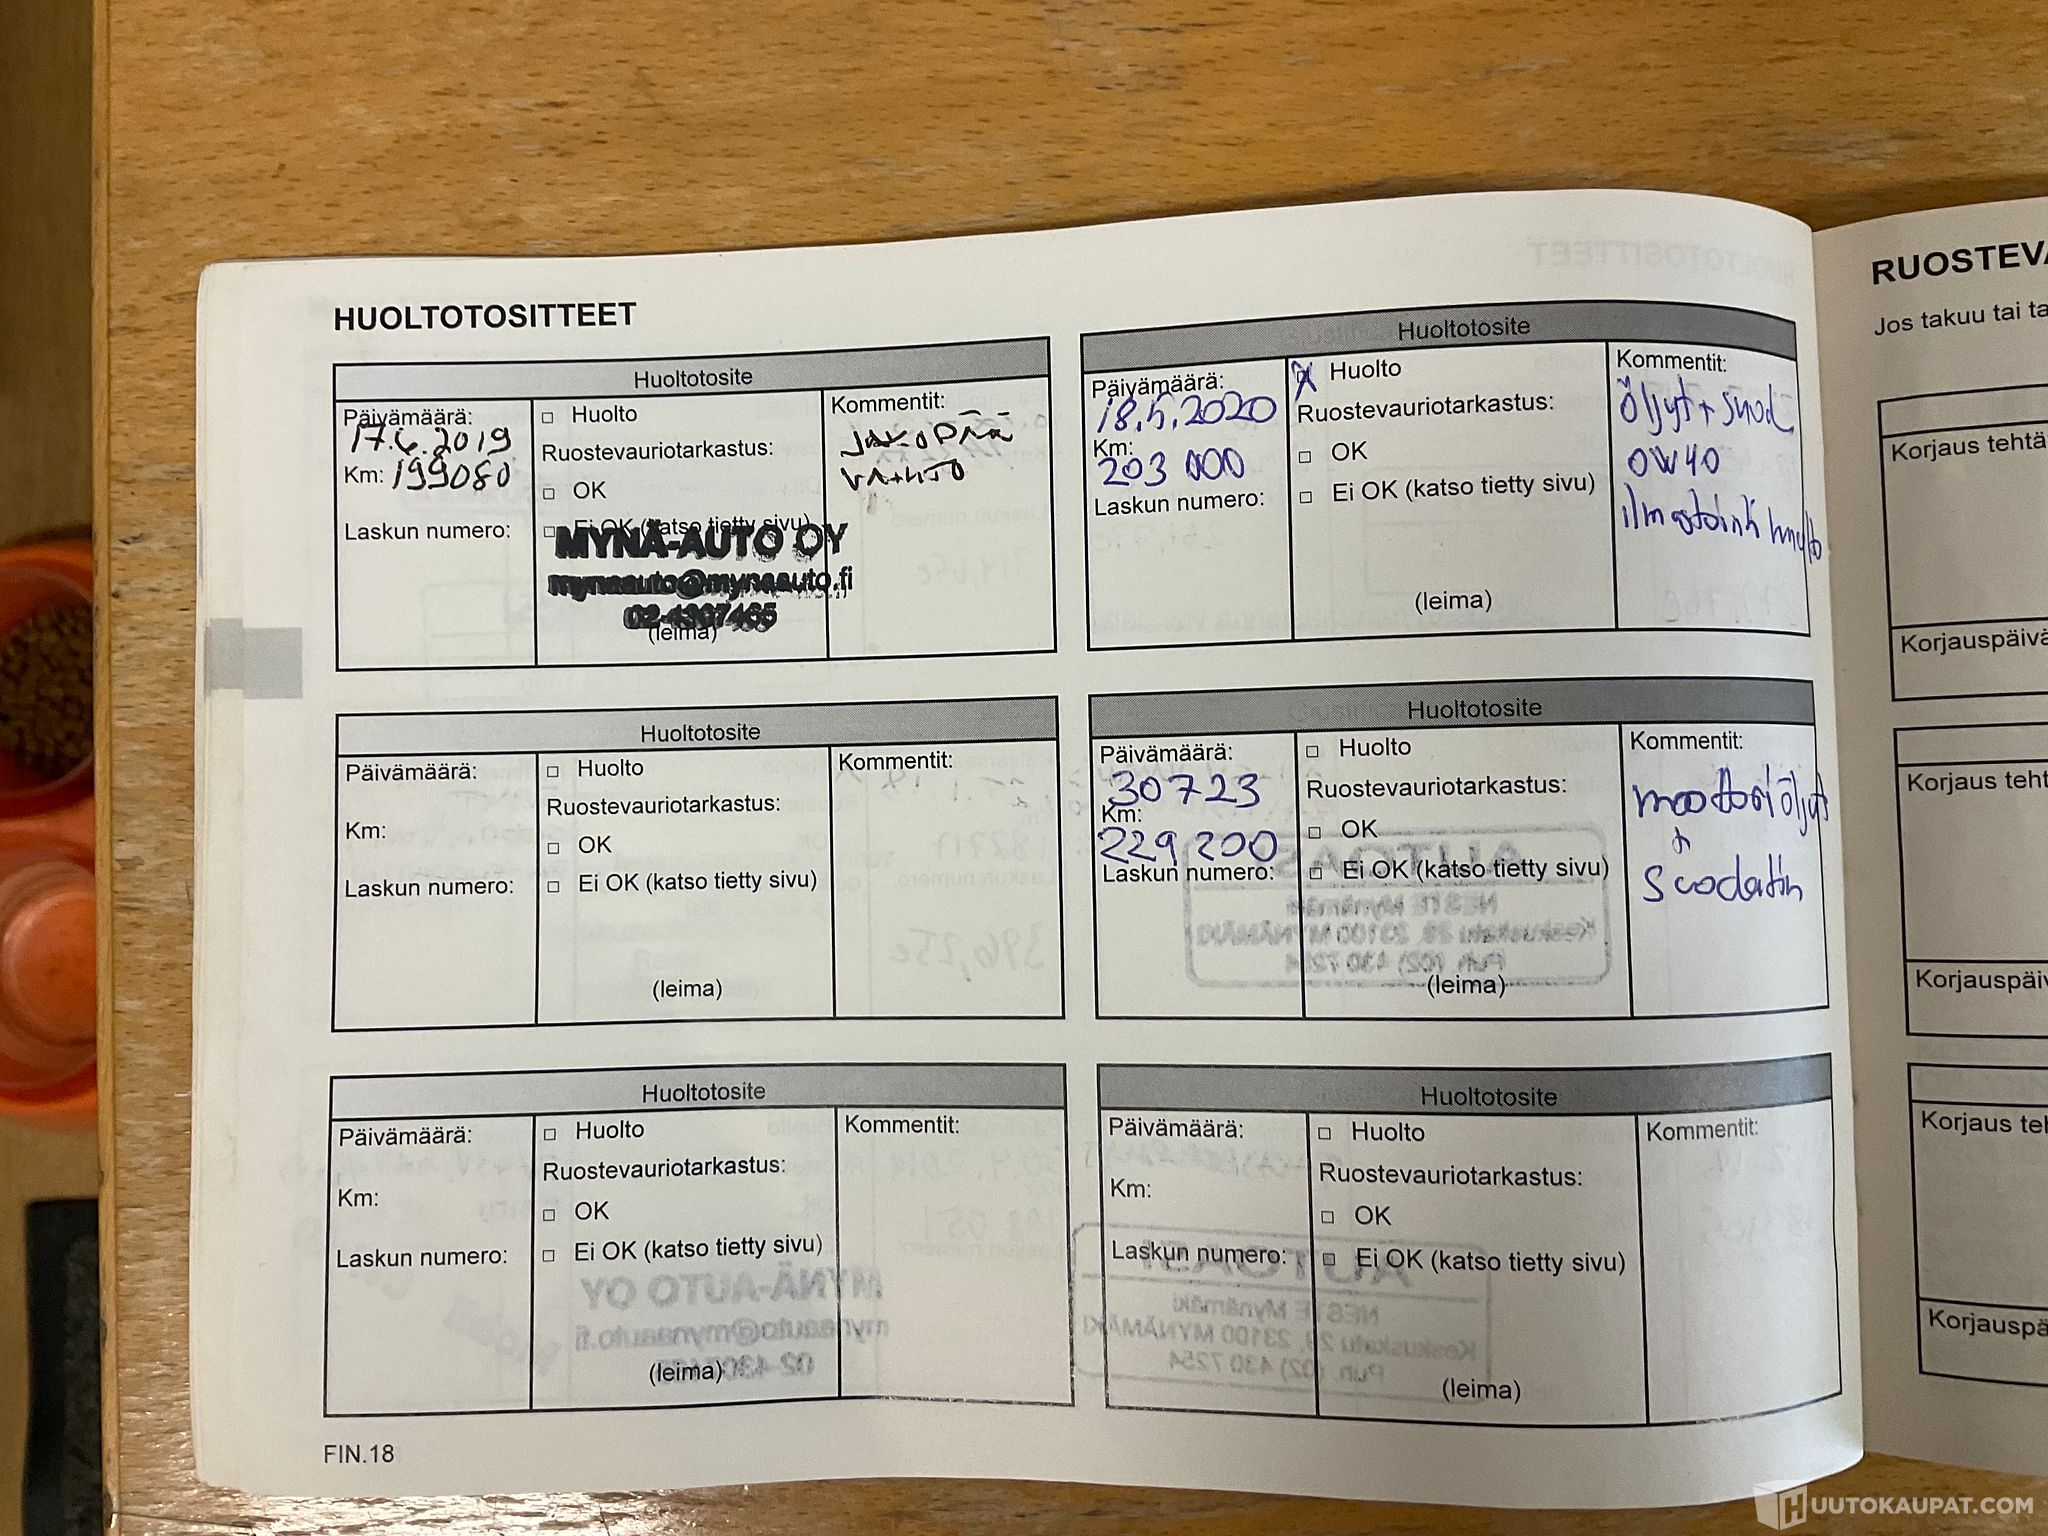 HUOLTOTOSITTEET
Huoltotosite
Päivämäärä:
17.6.2019
Km: 199080
Laskun numero:
□ Huolto
Ruostevauriotarkastus:
□ OK
□ Ei OK (katso tietty sivu)
MYNÄ-AUTO OY
mynaauto@mynaauto.fi
02-4307465
(leima)
Kommentit:
JAKOPÄÄ
VAIHTO
Huoltotosite
Päivämäärä:
18.5.2020
Km:
203 000
Laskun numero:
X Huolto
Ruostevauriotarkastus:
□ OK
□ Ei OK (katso tietty sivu)
(leima)
Kommentit:
Öljyt + suod
0W40
ilmastointi huolto
Huoltotosite
Päivämäärä:
Km:
Laskun numero:
□ Huolto
Ruostevauriotarkastus:
□ OK
□ Ei OK (katso tietty sivu)
(leima)
Kommentit:
Huoltotosite
Päivämäärä:
30723
Km:
229200
Laskun numero:
□ Huolto
Ruostevauriotarkastus:
□ OK
□ Ei OK (katso tietty sivu)
(leima)
Kommentit:
moottoriöljyt
+
suodatin
Huoltotosite
Päivämäärä:
Km:
Laskun numero:
□ Huolto
Ruostevauriotarkastus:
□ OK
□ Ei OK (katso tietty sivu)
(leima)
Kommentit:
Huoltotosite
Päivämäärä:
Km:
Laskun numero:
□ Huolto
Ruostevauriotarkastus:
□ OK
□ Ei OK (katso tietty sivu)
(leima)
Kommentit:
FIN.18
RUOSTEVA
Jos takuu tai ta
Korjaus tehtä
Korjauspäivä
Korjaus teht
Korjauspäiv
Korjaus teh
Korjauspä
HUUTOKAUPAT.COM